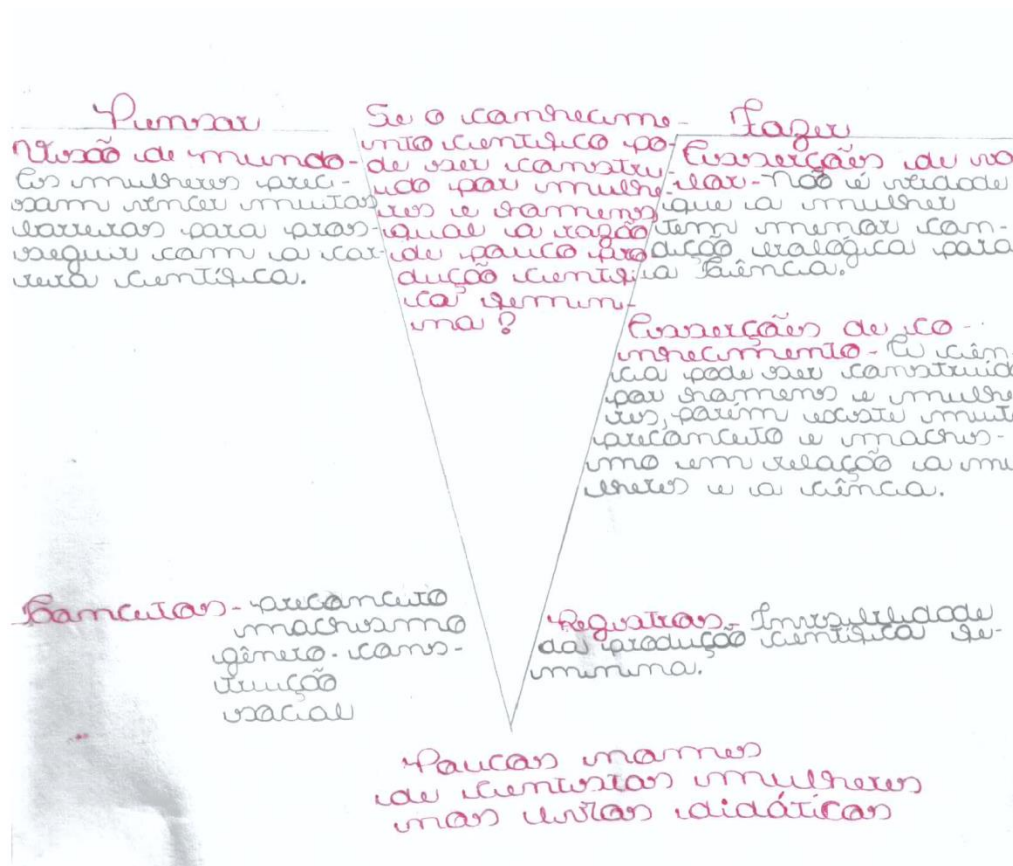 Pensar
Visão de mundo-
As mulheres preci-
sam vencer muitas
barreiras para pros-
seguir com a car-
reira científica.
Conceitos- preconceito
machismo
gênero- cons-
trução
social
Se o conhecime-
nto científico po-
de ser constru-
ido por mulhe-
res e homens
qual a razão
de pouca pro
dução científi-
ca femini-
na?
Fazer
Asserções de va-
lor- Não é verdade
que a mulher
tem menor con-
dição biológica para
a Ciência.
Asserções de co-
nhecimento- A ciên-
cia pode ser construid
por homens e mulhe
res, porém existe muit
preconceito e machis-
mo em relação a mu
lheres e a ciência.
Registros- Invisibilidade
da produção científica fe-
minina.
Poucos nomes
de cientistas mulheres
nos livros didáticos